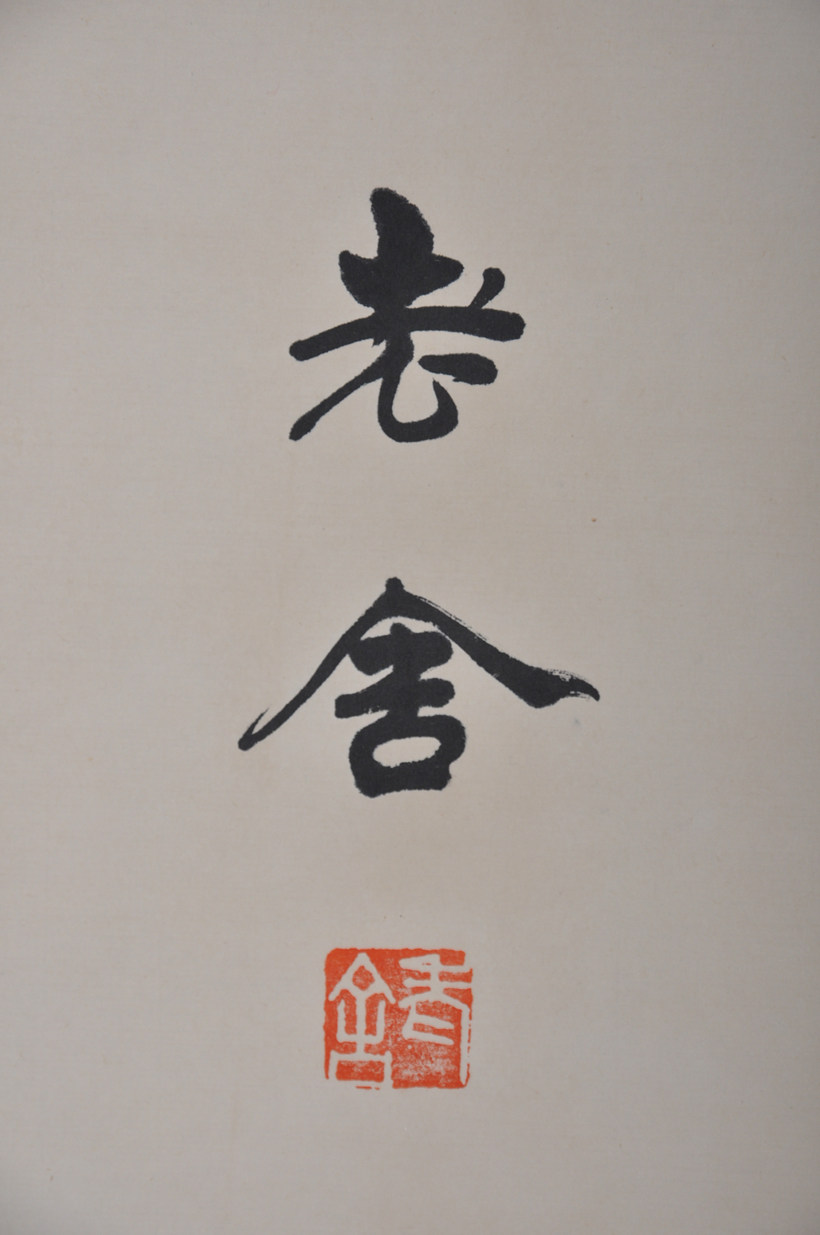 老
舍
老舍